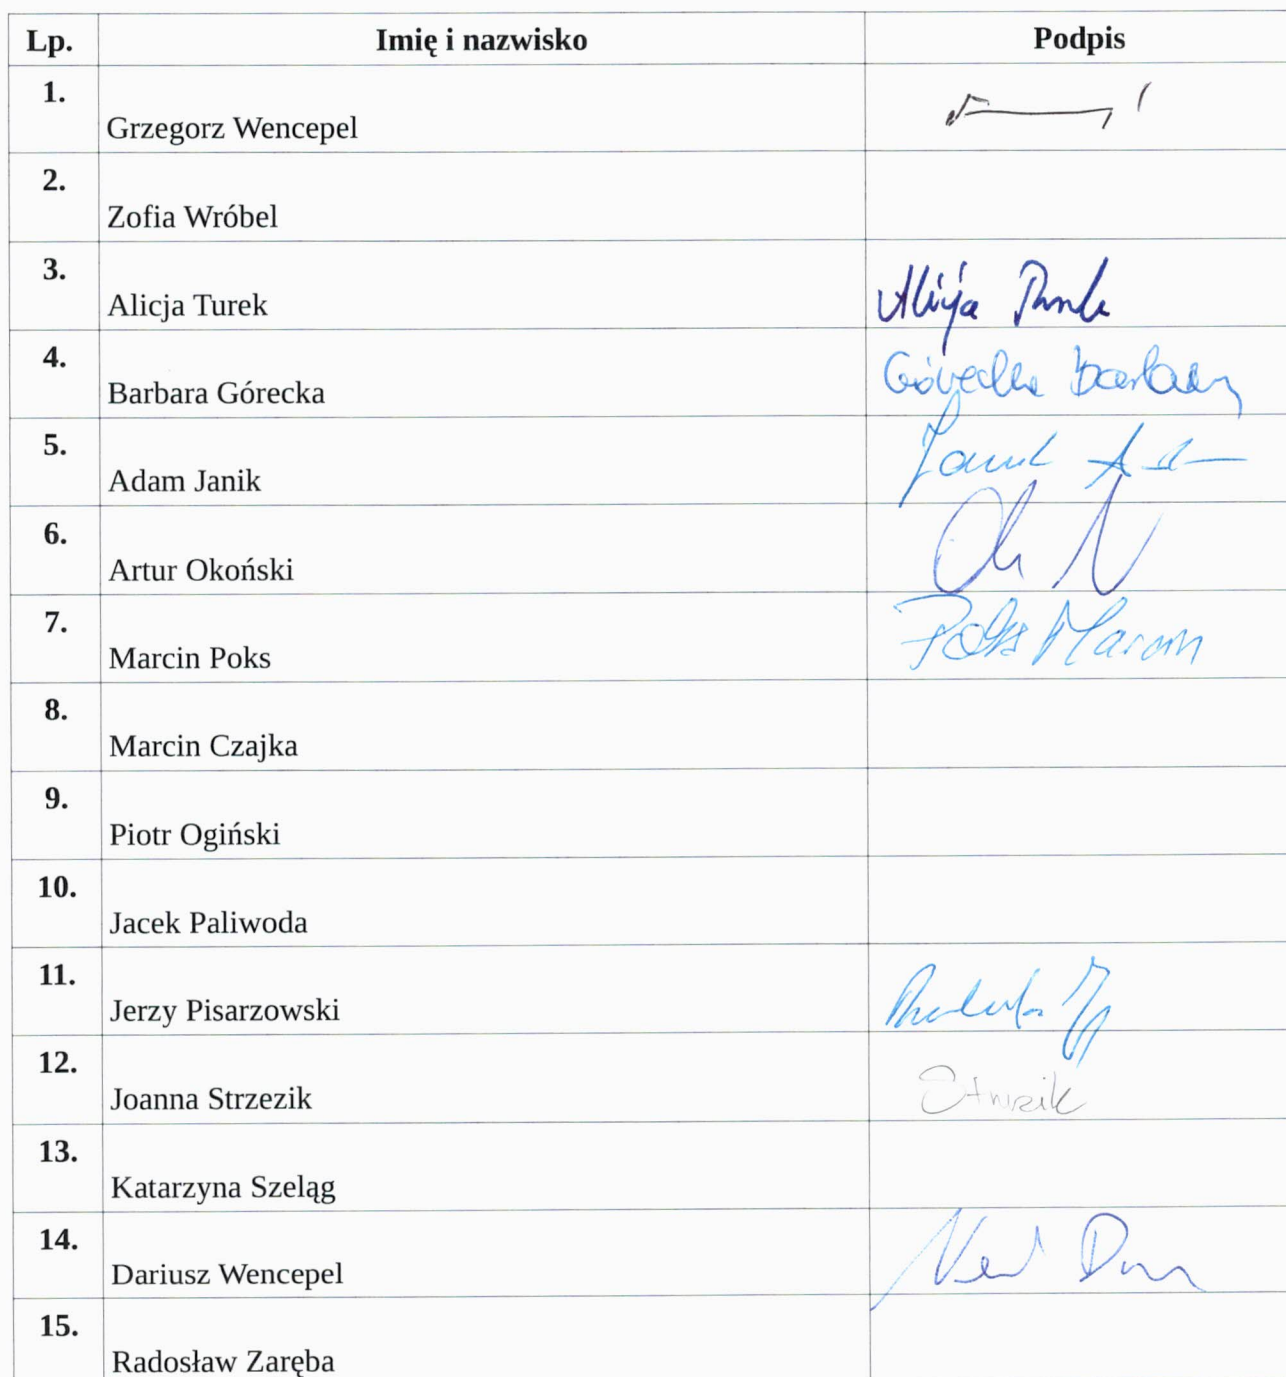 Lp. Imię i nazwisko Podpis
1. Grzegorz Wencepel
2. Zofia Wróbel
3. Alicja Turek Alicja Turek
4. Barbara Górecka Górecka Barbara
5. Adam Janik Janik A
6. Artur Okoński
7. Marcin Poks Poks Marcin
8. Marcin Czajka
9. Piotr Ogiński
10. Jacek Paliwoda
11. Jerzy Pisarzowski
12. Joanna Strzezik Strzezik
13. Katarzyna Szeląg
14. Dariusz Wencepel
15. Radosław Zaręba